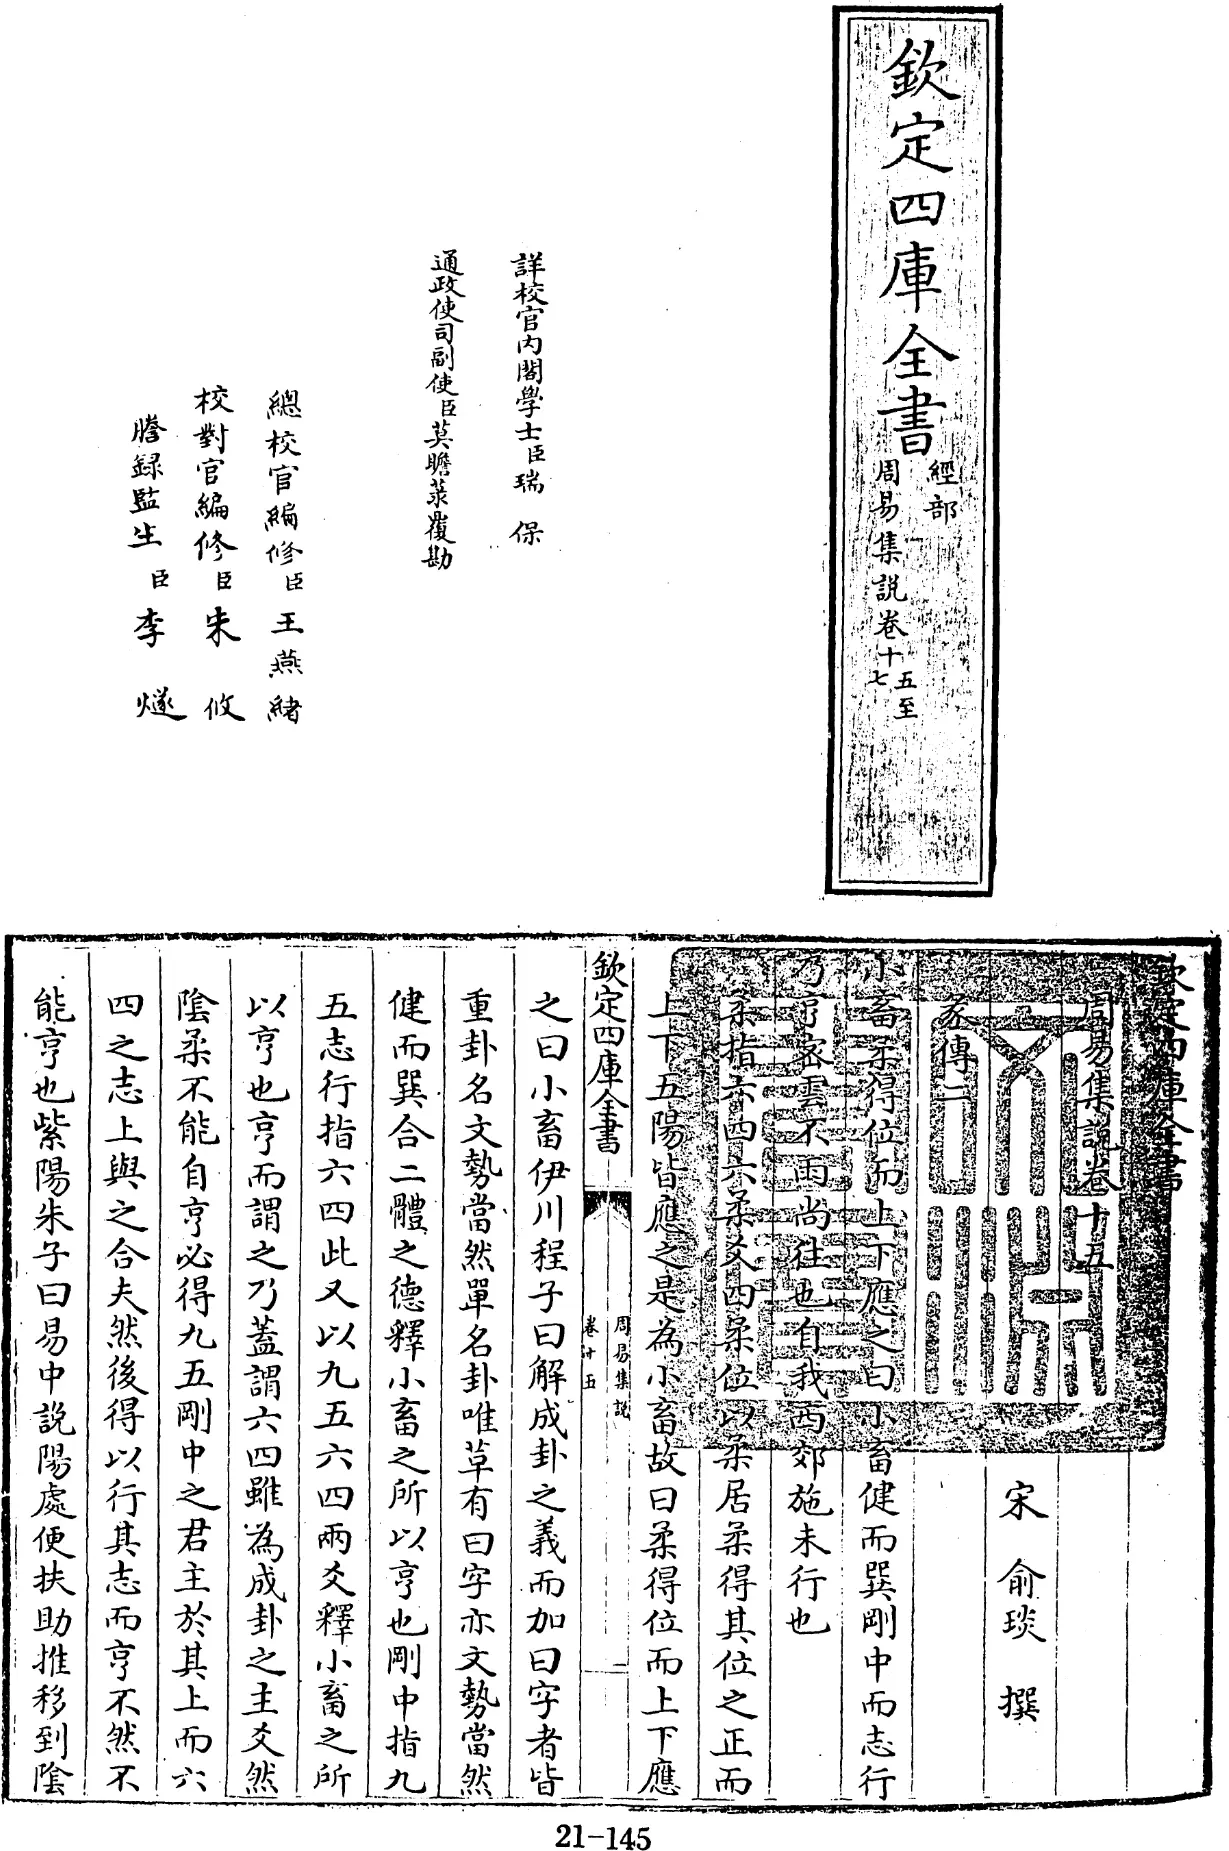 欽定四庫全書
經部
周易集說卷十五至
七
詳校官內閣學士臣瑞保
通政使司副使臣莫瞻菉覆勘
總校官編修臣王燕緒
校對官編修臣朱攸
謄錄監生臣李燧
欽定四庫全書
周易集說卷十五
宋俞琰撰
彖傳二
小畜柔得位而上下應之曰小畜健而巽剛中而志行
乃亨密雲不雨尚往也自我西郊施未行也
柔指六四六柔爻四柔位以柔居柔得其位之正而
上下五陽皆應之是為小畜故曰柔得位而上下應
欽定四庫全書
周易集說
卷十五
之曰小畜伊川程子曰解成卦之義而加曰字者皆
重卦名文勢當然單名卦唯革有曰字亦文勢當然
健而巽合二體之德釋小畜之所以亨也剛中指九
五志行指六四此又以九五六四兩爻釋小畜之所
以亨也亨而謂之乃蓋謂六四雖為成卦之主爻然
陰柔不能自亨必得九五剛中之君主於其上而六
四之志上與之合夫然後得以行其志而亨不然不
能亨也紫陽朱子曰易中說陽處便扶助推移到陰
21-145